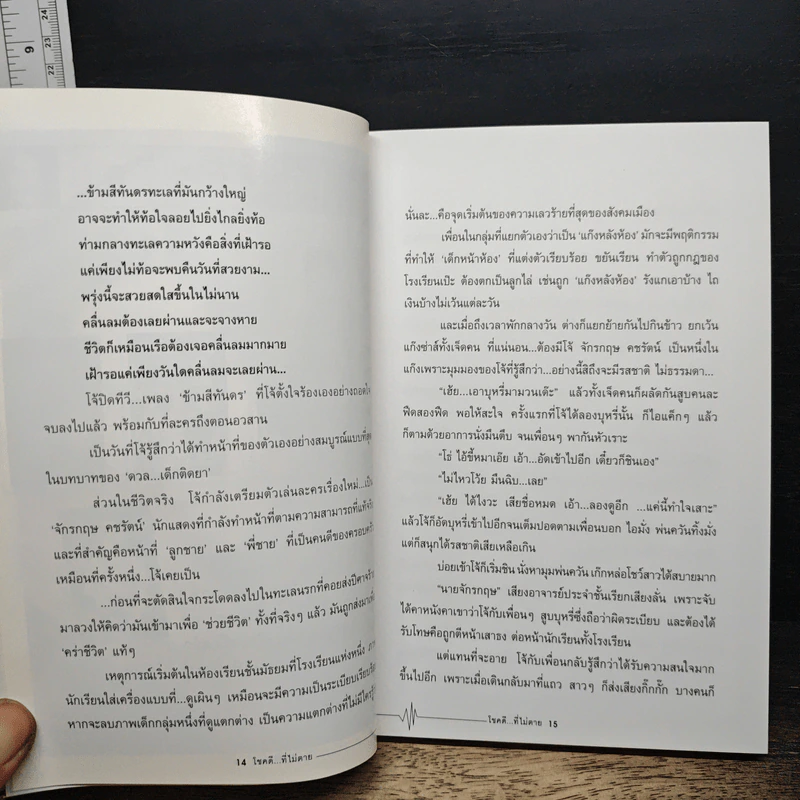 ...ข้ามสีทันดรทะเลที่มันกว้างใหญ่
อาจจะทำให้ท้อใจลอยไปยิ่งไกลยิ่งท้อ
ท่ามกลางทะเลความหวังคือสิ่งที่เฝ้ารอ
แค่เพียงไม่ท้อจะพบคืนวันที่สวยงาม...
พรุ่งนี้จะสวยสดใสขึ้นในไม่นาน
คลื่นลมต้องเลยผ่านและจะจางหาย
ชีวิตก็เหมือนเรือต้องเจอคลื่นลมมากมาย
เฝ้ารอแค่เพียงวันใดคลื่นลมจะเลยผ่าน...
โจ้ปิดทีวี...เพลง ‘ข้ามสีทันดร’ ที่โจ้ตั้งใจร้องเองอย่างถอดใจ
จบลงไปแล้ว พร้อมกับที่ละครถึงตอนอวสาน
เป็นวันที่โจ้รู้สึกว่าได้ทำหน้าที่ของตัวเองอย่างสมบูรณ์แบบที่สุด
ในบทบาทของ ‘ดวล...เด็กติดยา’
ส่วนในชีวิตจริง โจ้กำลังเตรียมตัวเล่นละครเรื่องใหม่...เป็น
‘จักรกฤษ คชรัตน์’ นักแสดงที่กำลังทำหน้าที่ตามความสามารถที่แท้จริง
และที่สำคัญคือหน้าที่ ‘ลูกชาย’ และ ‘พี่ชาย’ ที่เป็นคนดีของครอบครัว
เหมือนที่ครั้งหนึ่ง...โจ้เคยเป็น
...ก่อนที่จะตัดสินใจกระโดดลงไปในทะเลนรกที่คอยส่งปีศาจร้าย
มาลวงให้คิดว่ามันเข้ามาเพื่อ ‘ช่วยชีวิต’ ทั้งที่จริงๆ แล้ว มันถูกส่งมาเพื่อ
‘คร่าชีวิต’ แท้ๆ
เหตุการณ์เริ่มต้นในห้องเรียนชั้นมัธยมที่โรงเรียนแห่งหนึ่ง
นักเรียนใส่เครื่องแบบที่...ดูเผินๆ เหมือนจะมีความเป็นระเบียบเรียบร้อย
หากจะลบภาพเด็กกลุ่มหนึ่งที่ดูแตกต่าง เป็นความแตกต่างที่ไม่มีใครรู้
14 โชคดี...ที่ไม่ตาย
นั่นละ...คือจุดเริ่มต้นของความเลวร้ายที่สุดของสังคมเมือง
เพื่อนในกลุ่มที่แยกตัวเองว่าเป็น ‘แก๊งหลังห้อง’ มักจะมีพฤติกรรม
ที่ทำให้ ‘เด็กหน้าห้อง’ ที่แต่งตัวเรียบร้อย ขยันเรียน ทำตัวถูกกฎของ
โรงเรียนเป๊ะ ต้องตกเป็นลูกไล่ เช่นถูก ‘แก๊งหลังห้อง’ รังแกเอาบ้าง ไถ
เงินบ้างไม่เว้นแต่ละวัน
และเมื่อถึงเวลาพักกลางวัน ต่างก็แยกย้ายกันไปกินข้าว ยกเว้น
แก๊งซ่าส์ทั้งเจ็ดคน ที่แน่นอน...ต้องมีโจ้ จักรกฤษ คชรัตน์ เป็นหนึ่งใน
แก๊งเพราะมุมมองของโจ้ที่รู้สึกว่า...อย่างนี้สิถึงจะมีรสชาติ ไม่ธรรมดา...
“เฮ้ย...เอาบุหรี่มามวนเด๊ะ” แล้วทั้งเจ็ดคนก็ผลัดกันสูบคนละ
ฟืดสองฟืด พอให้สะใจ ครั้งแรกที่โจ้ได้ลองบุหรี่นั้น ก็ไอแค็กๆ แล้ว
ก็ตามด้วยอาการนั่งมึนตึบ จนเพื่อนๆ พากันหัวเราะ
“โธ่ ไอ้ขี้หมาเอ๊ย เอ้า...อัดเข้าไปอีก เดี๋ยวก็ชินเอง”
“ไม่ไหวโว้ย มึนฉิบ...เลย”
“เฮ้ย ได้ไงวะ เสียชื่อหมด เอ้า...ลองดูอีก ...แค่นี้ทำใจเสาะ”
แล้วโจ้ก็อัดบุหรี่เข้าไปอีกจนเต็มปอดตามเพื่อนบอก ไอมั่ง พ่นควันทิ้งมั่ง
แต่ก็สนุกได้รสชาติเสียเหลือเกิน
บ่อยเข้าโจ้ก็เริ่มชิน นั่งหามุมพ่นควัน เก๊กหล่อโชว์สาวได้สบายมาก
“นายจักรกฤษ” เสียงอาจารย์ประจำชั้นเรียกเสียงลั่น เพราะจับ
ได้คาหนังคาเขาว่าโจ้กับเพื่อนๆ สูบบุหรี่ซึ่งถือว่าผิดระเบียบ และต้องได้
รับโทษคือถูกตีหน้าเสาธง ต่อหน้านักเรียนทั้งโรงเรียน
แต่แทนที่จะอาย โจ้กับเพื่อนกลับรู้สึกว่าได้รับความสนใจมาก
ขึ้นไปอีก เพราะเมื่อเดินกลับมาที่แถว สาวๆ ก็ส่งเสียงกิ๊กกั๊ก บางคนก็
โชคดี...ที่ไม่ตาย 15